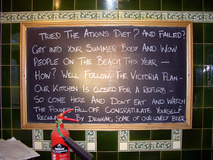 Tried The Atkins Diet? And Failed?
Get into your Summer Body And Wow
People On The Beach This Year –
How? Well Follow The Victoria Plan –
Our Kitchen Is Closed For A Refurb –
So Come Here And Don't Eat And Watch
The Pounds Fall Off Congratulate Yourself
By Drinking Some of our Lovely Beer